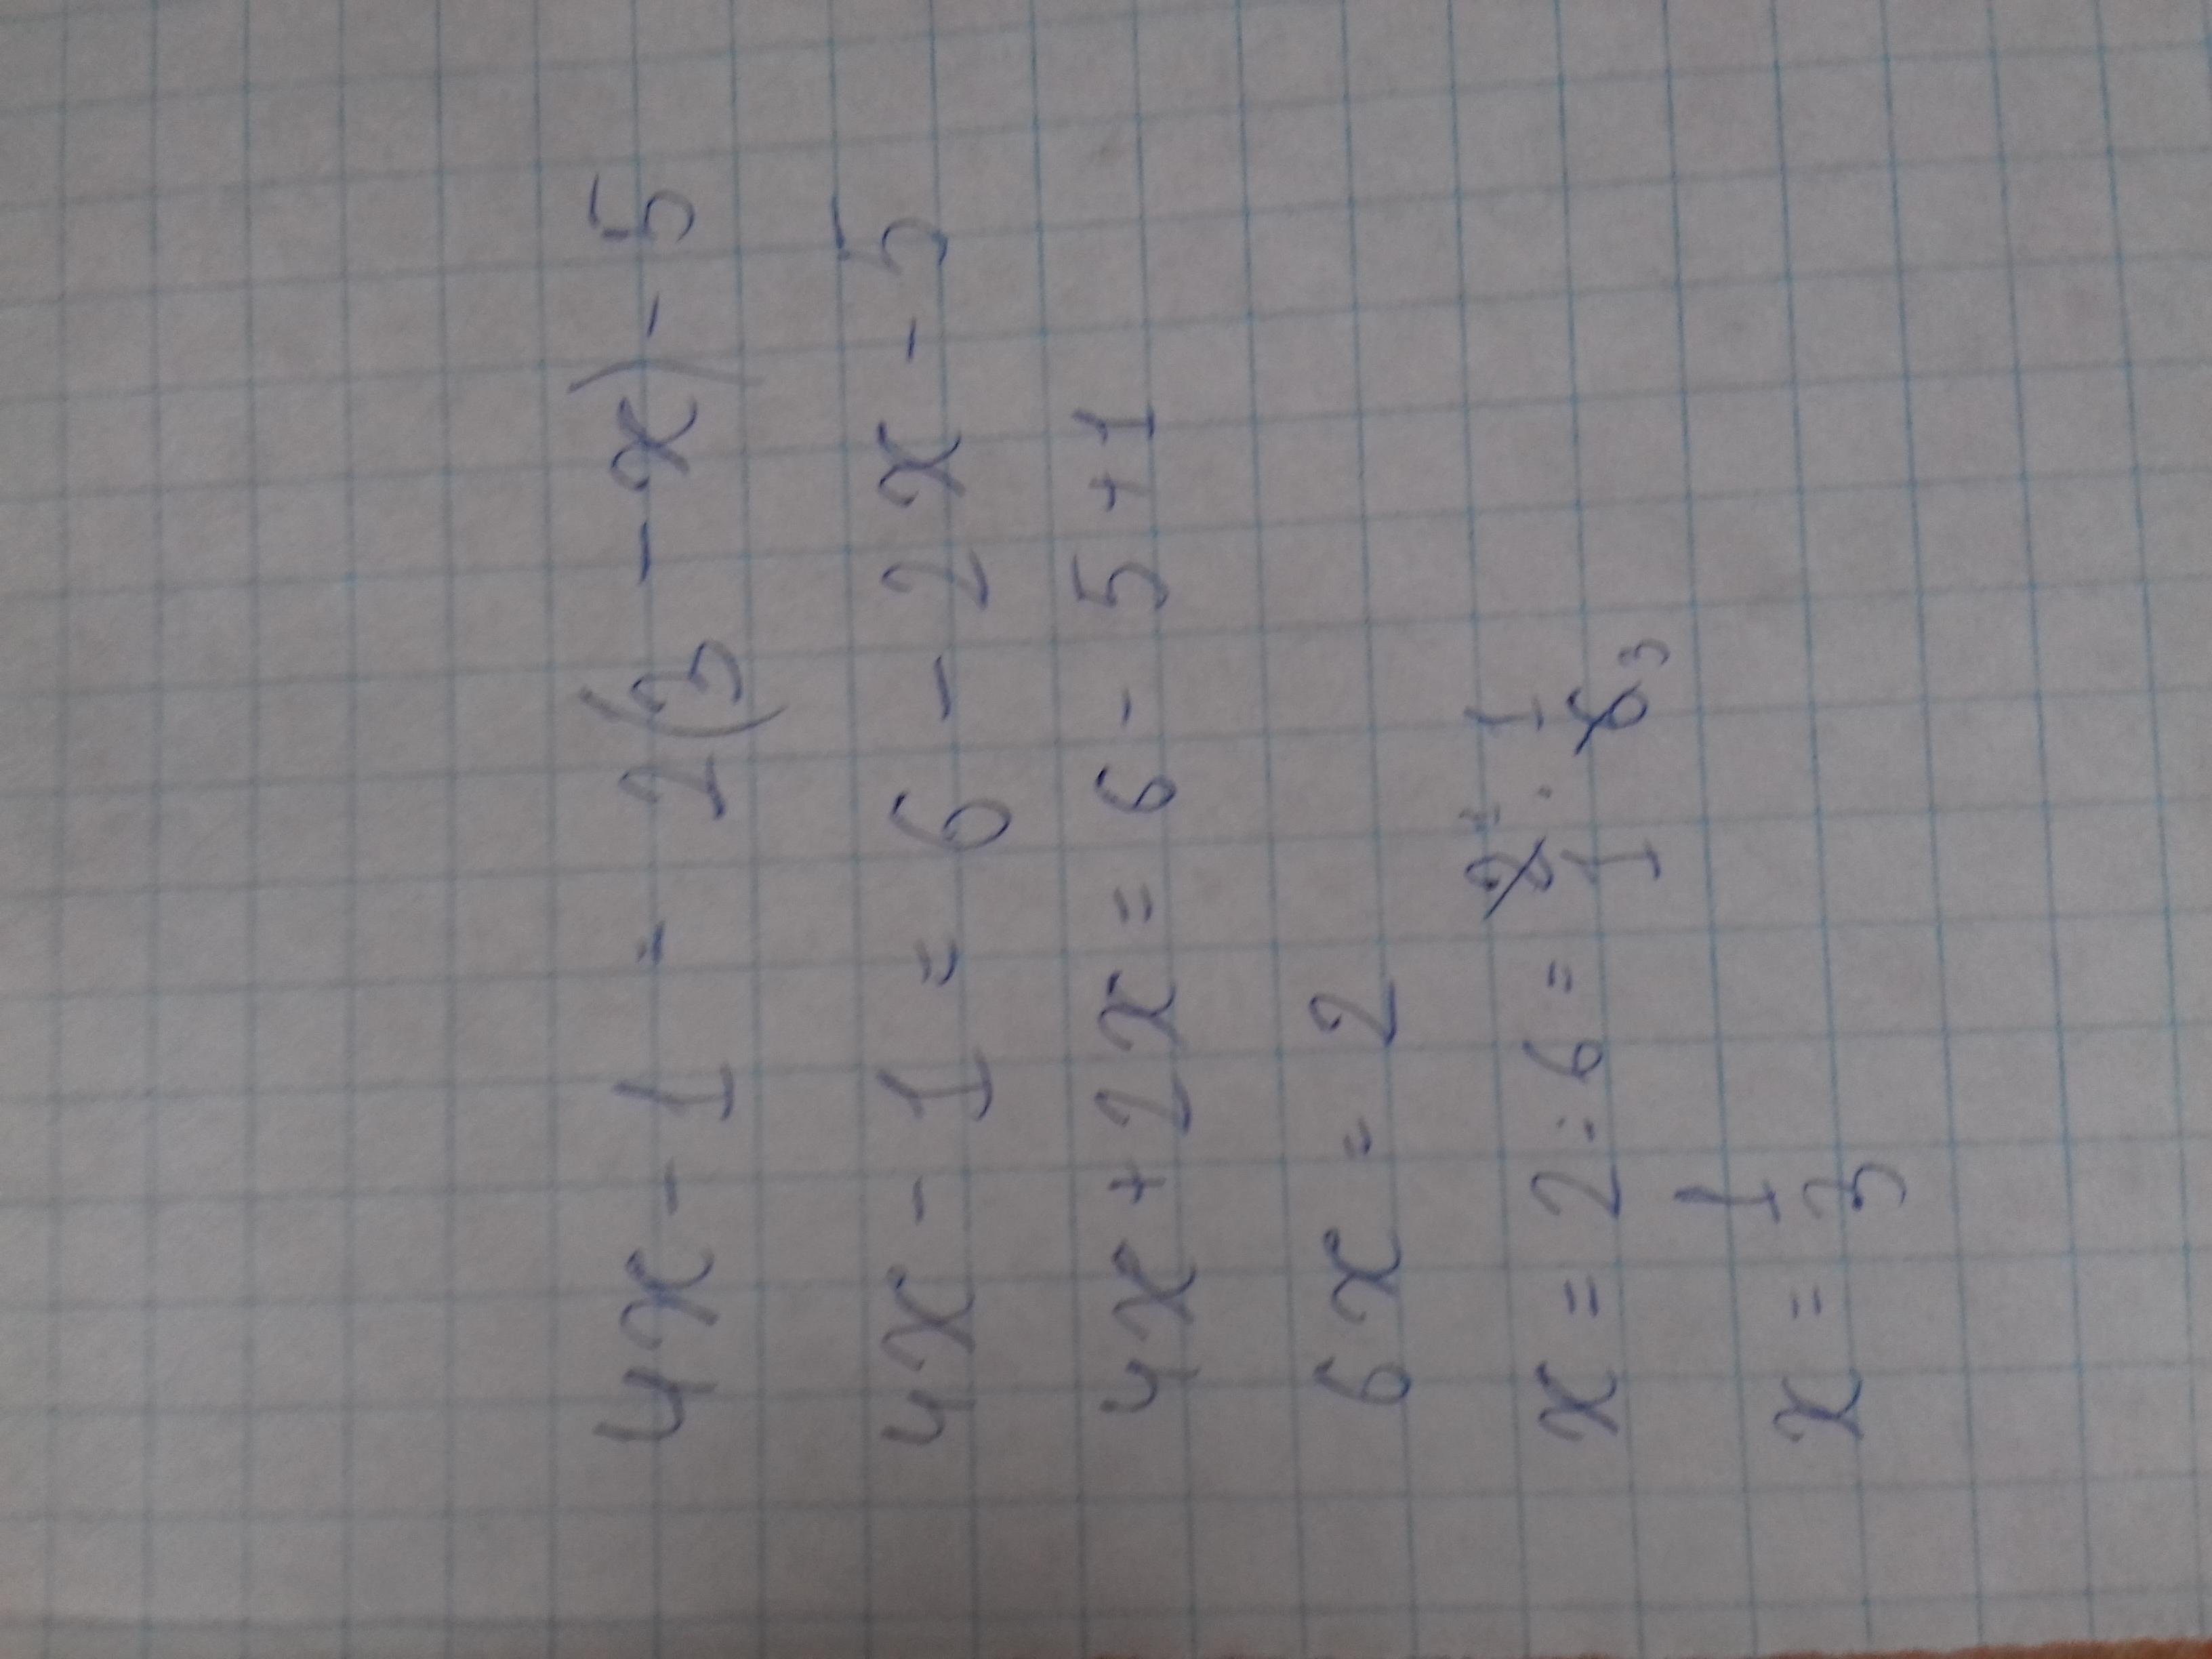 4x - 1 = 2(3 - x) - 5
4x - 1 = 6 - 2x - 5
4x + 2x = 6 - 5 + 1
6x = 2
x = 2 : 6 = 2/1 · 1/6
x = 1/3